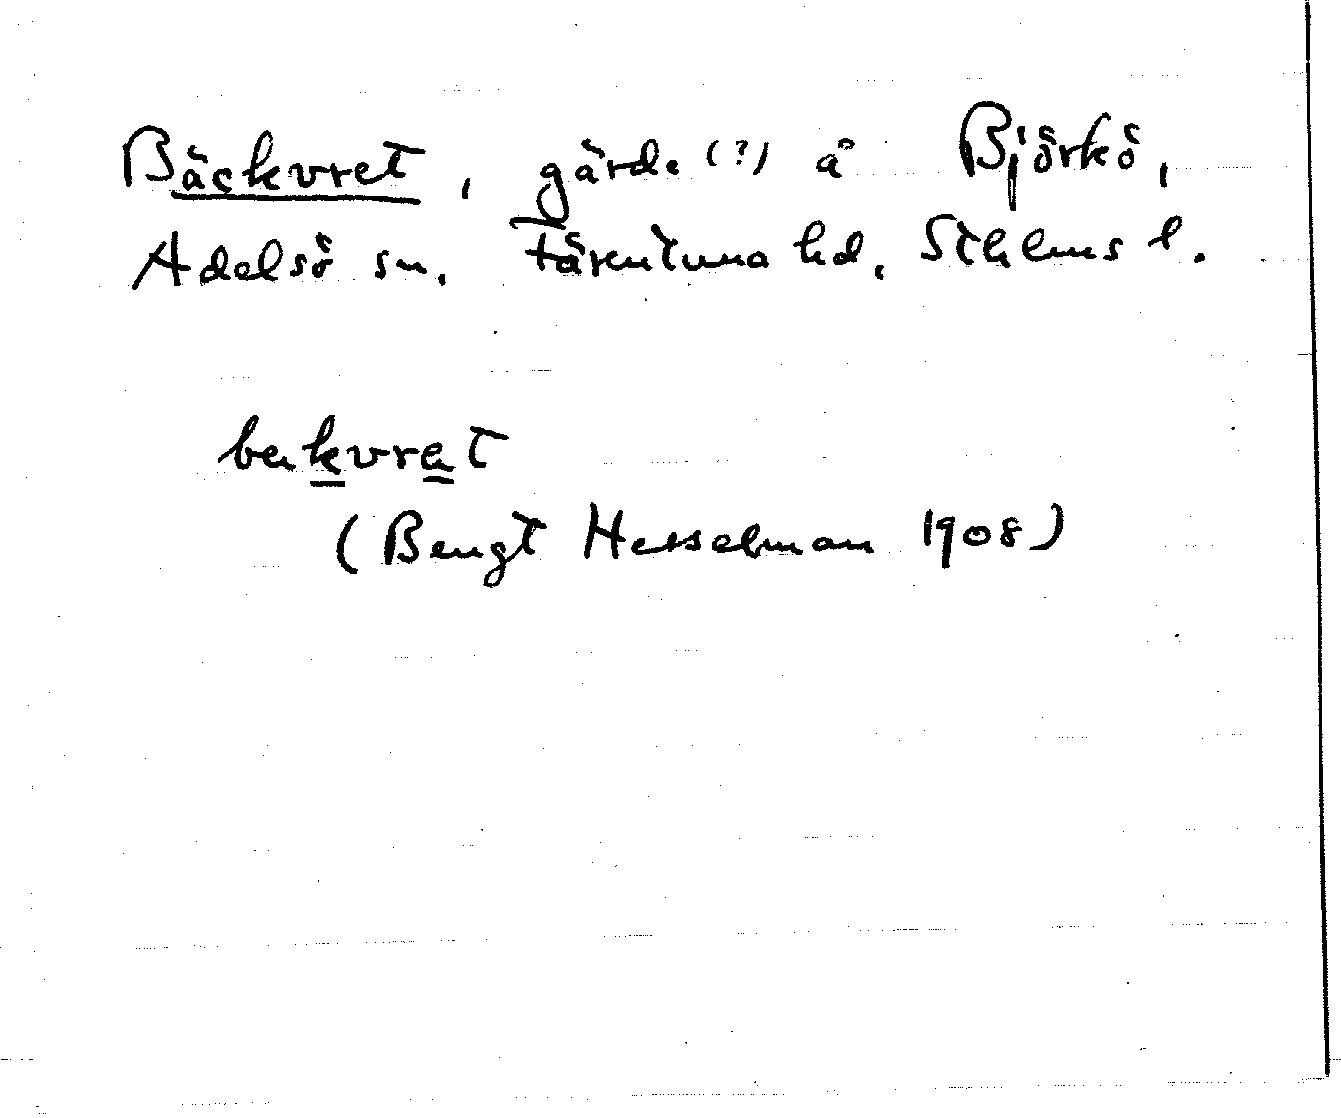 Bäckvret, gärde (?) å Björkö,
Adelsö sn. Färentuna hd, Sthlms l.
bekvret
(Bengt Hesselman 1908)